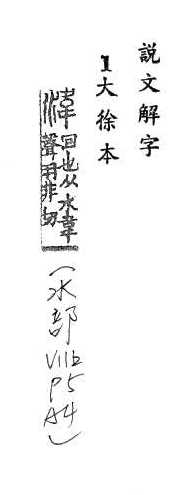 說文解字
1大徐本
湋回也从水韋
聲羽非切
（水部
VIIb
P5
A4）